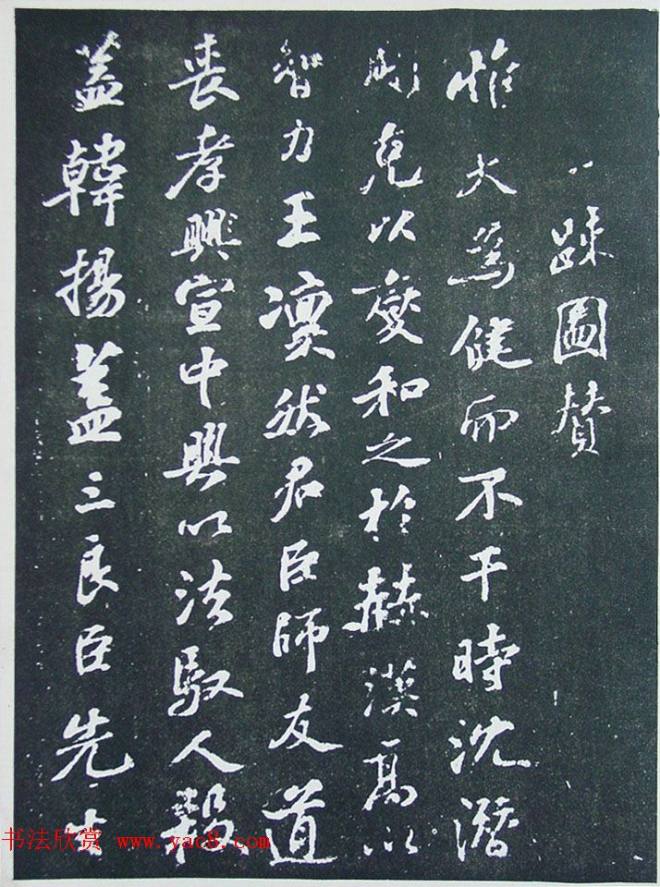 二疎圖贊
惟天為健而不干時沈潛
剛克以燮和之於赫漢高以
智力王凜然君臣師友道
喪孝興宣中興以法馭人殺
蓋韓揚蓋三良臣先生
书法欣赏 www.yac8.com